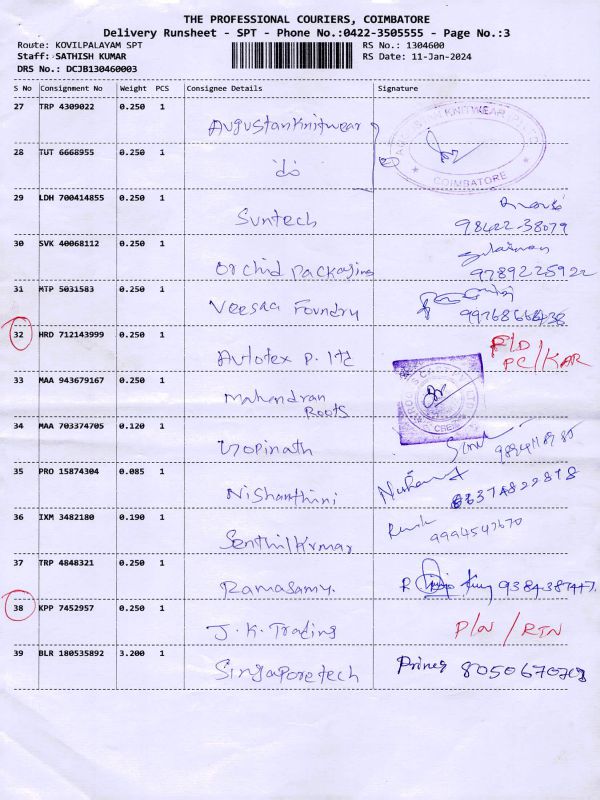 THE PROFESSIONAL COURIERS, COIMBATORE
Delivery Runsheet - SPT - Phone No.:0422-3505555 - Page No.:3
Route: KOVILPALAYAM SPT
RS No.: 1304600
Staff: SATHISH KUMAR
RS Date: 11-Jan-2024
DRS No.: DCJB130460003
S No Consignment No Weight PCS Consignee Details Signature
27 TRP 4309022 0.250 1
Augustan Knitwear
KNITWEAR
COIMBATORE
28 TUT 6668955 0.250 1
do
29 LDH 700414855 0.250 1
Suntech
98422-38079
30 SVK 40068112 0.250 1
Orchid Packaging
9789225922
31 MTP 5031583 0.250 1
Veesaa Foundry
32 HRD 712143999 0.250 1
Autotex P. ltd
PC/KAR
33 MAA 943679167 0.250 1
Mahendran
Roots
34 MAA 703374705 0.120 1
Gopinath
35 PRO 15874304 0.085 1
Nishanthini
36 IXM 3482180 0.190 1
Senthilkumar
9994547670
37 TRP 4848321 0.250 1
Ramasamy.
38 KPP 7452957 0.250 1
J.K. Trading
P/N / RTN
39 BLR 180535892 3.200 1
Singaporetech